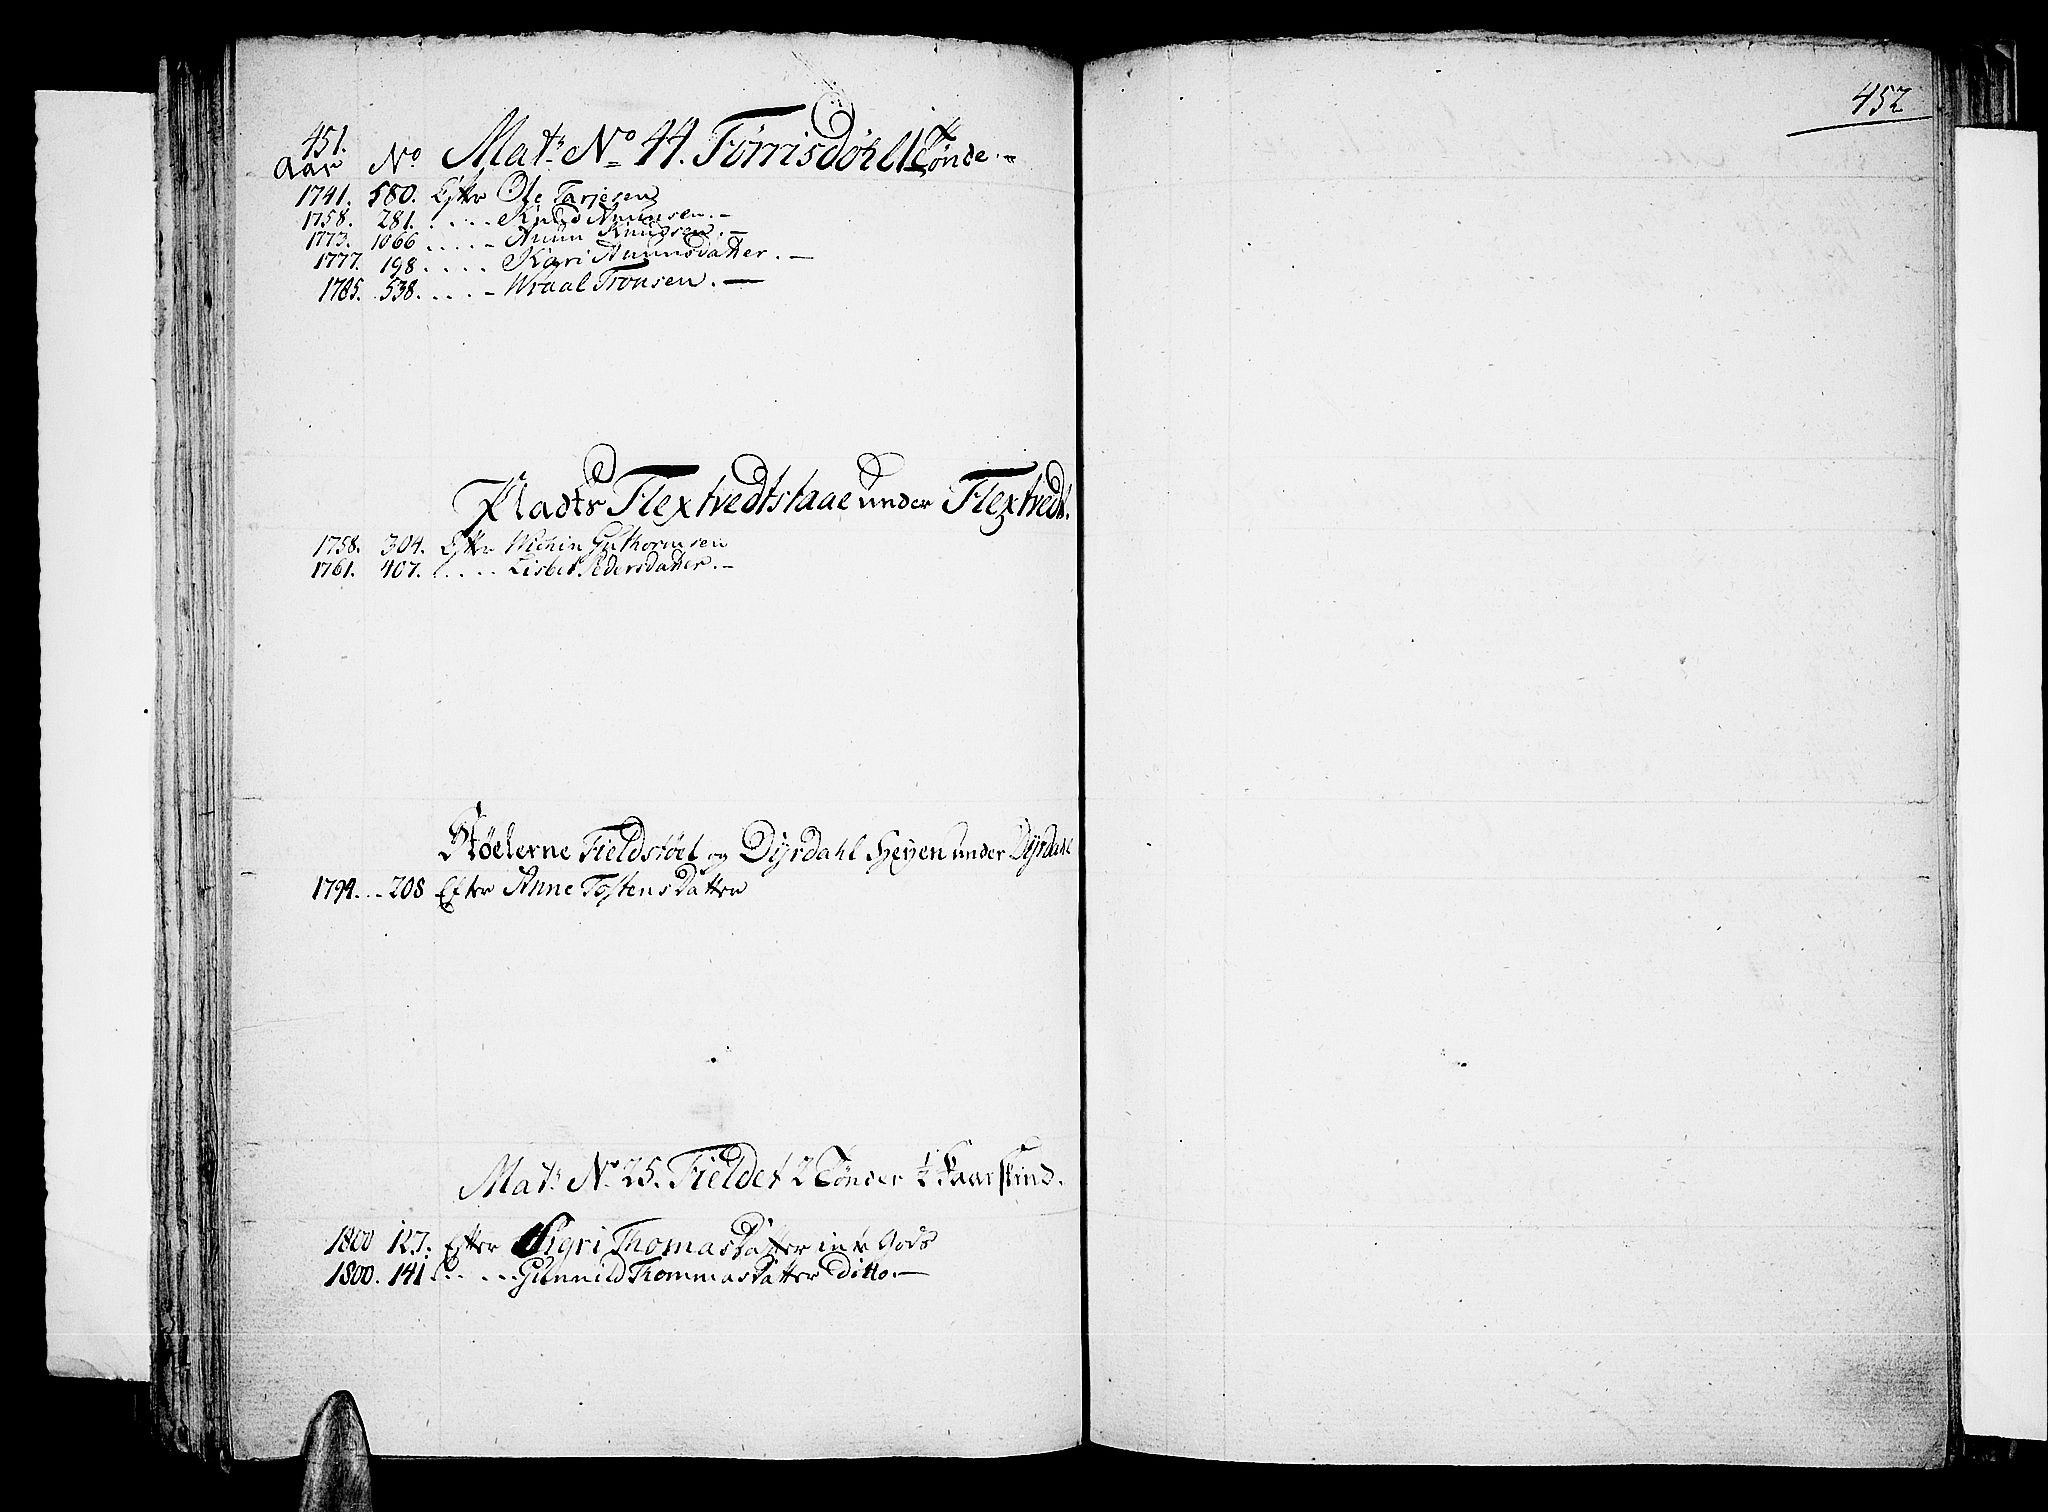 451.
Aar No Mat: No 44. Tørrisdøhl 1 Tønde.
1741. 580. Efter Ole Tarjesen
1758. 281. . . . . Knud Aunnsen.
1773. 1066 . . . . . Auun Knudsen.
1777. 198 . . . . Kari Auunsdatter.
1785. 538. . . . . Wraal Tronsen.
Plads Flextvedtstaae under Flextvedt.
1758. 304. Efter Guthormsen
1761. 407. . . . . . Lisbet Pedersdatter.
Støelerne Fieldstøel og Dÿrdahl Heÿen under Dÿrdahl
1794. . . 208 Efter Anne Tostensdatter
Mat: No 25. Fieldet 2 Tønder ½ Kaarskind.
1800 127. Efter Sigri Thomasdatter Gods
1800. 141. . . . . . Gunnild Thommasdatter Ditto.
452